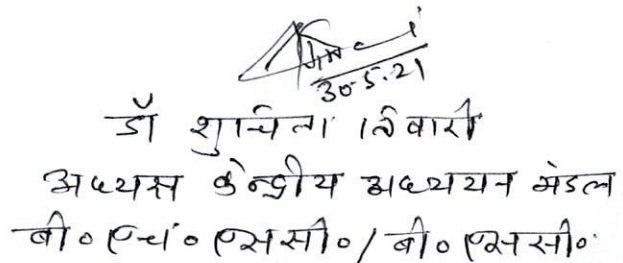 30.5.21
डॉ शुचिता तिवारी
अध्यक्ष केन्द्रीय अध्ययन मंडल
बी० एच० एससी० / बी० एससी०